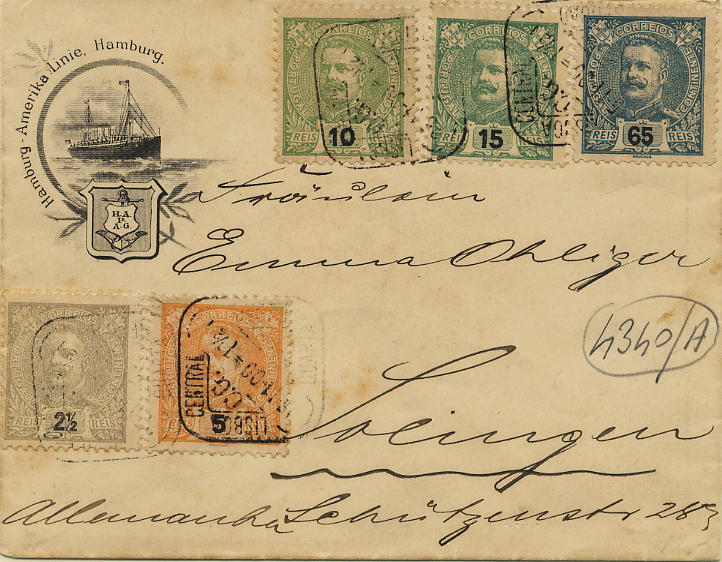 Hamburg-Amerika Linie, Hamburg.
H. A. P. A. G.
CORREIOS
10
REIS
CORREIOS
15
REIS REIS
CORREIOS
65
REIS REIS
CENTRAL
Fräulein
Emma Ohliger
4340/A
CORREIOS
2½
REIS REIS
CORREIOS
5
CENTRAL
Solingen
Allemanha Schützenstr